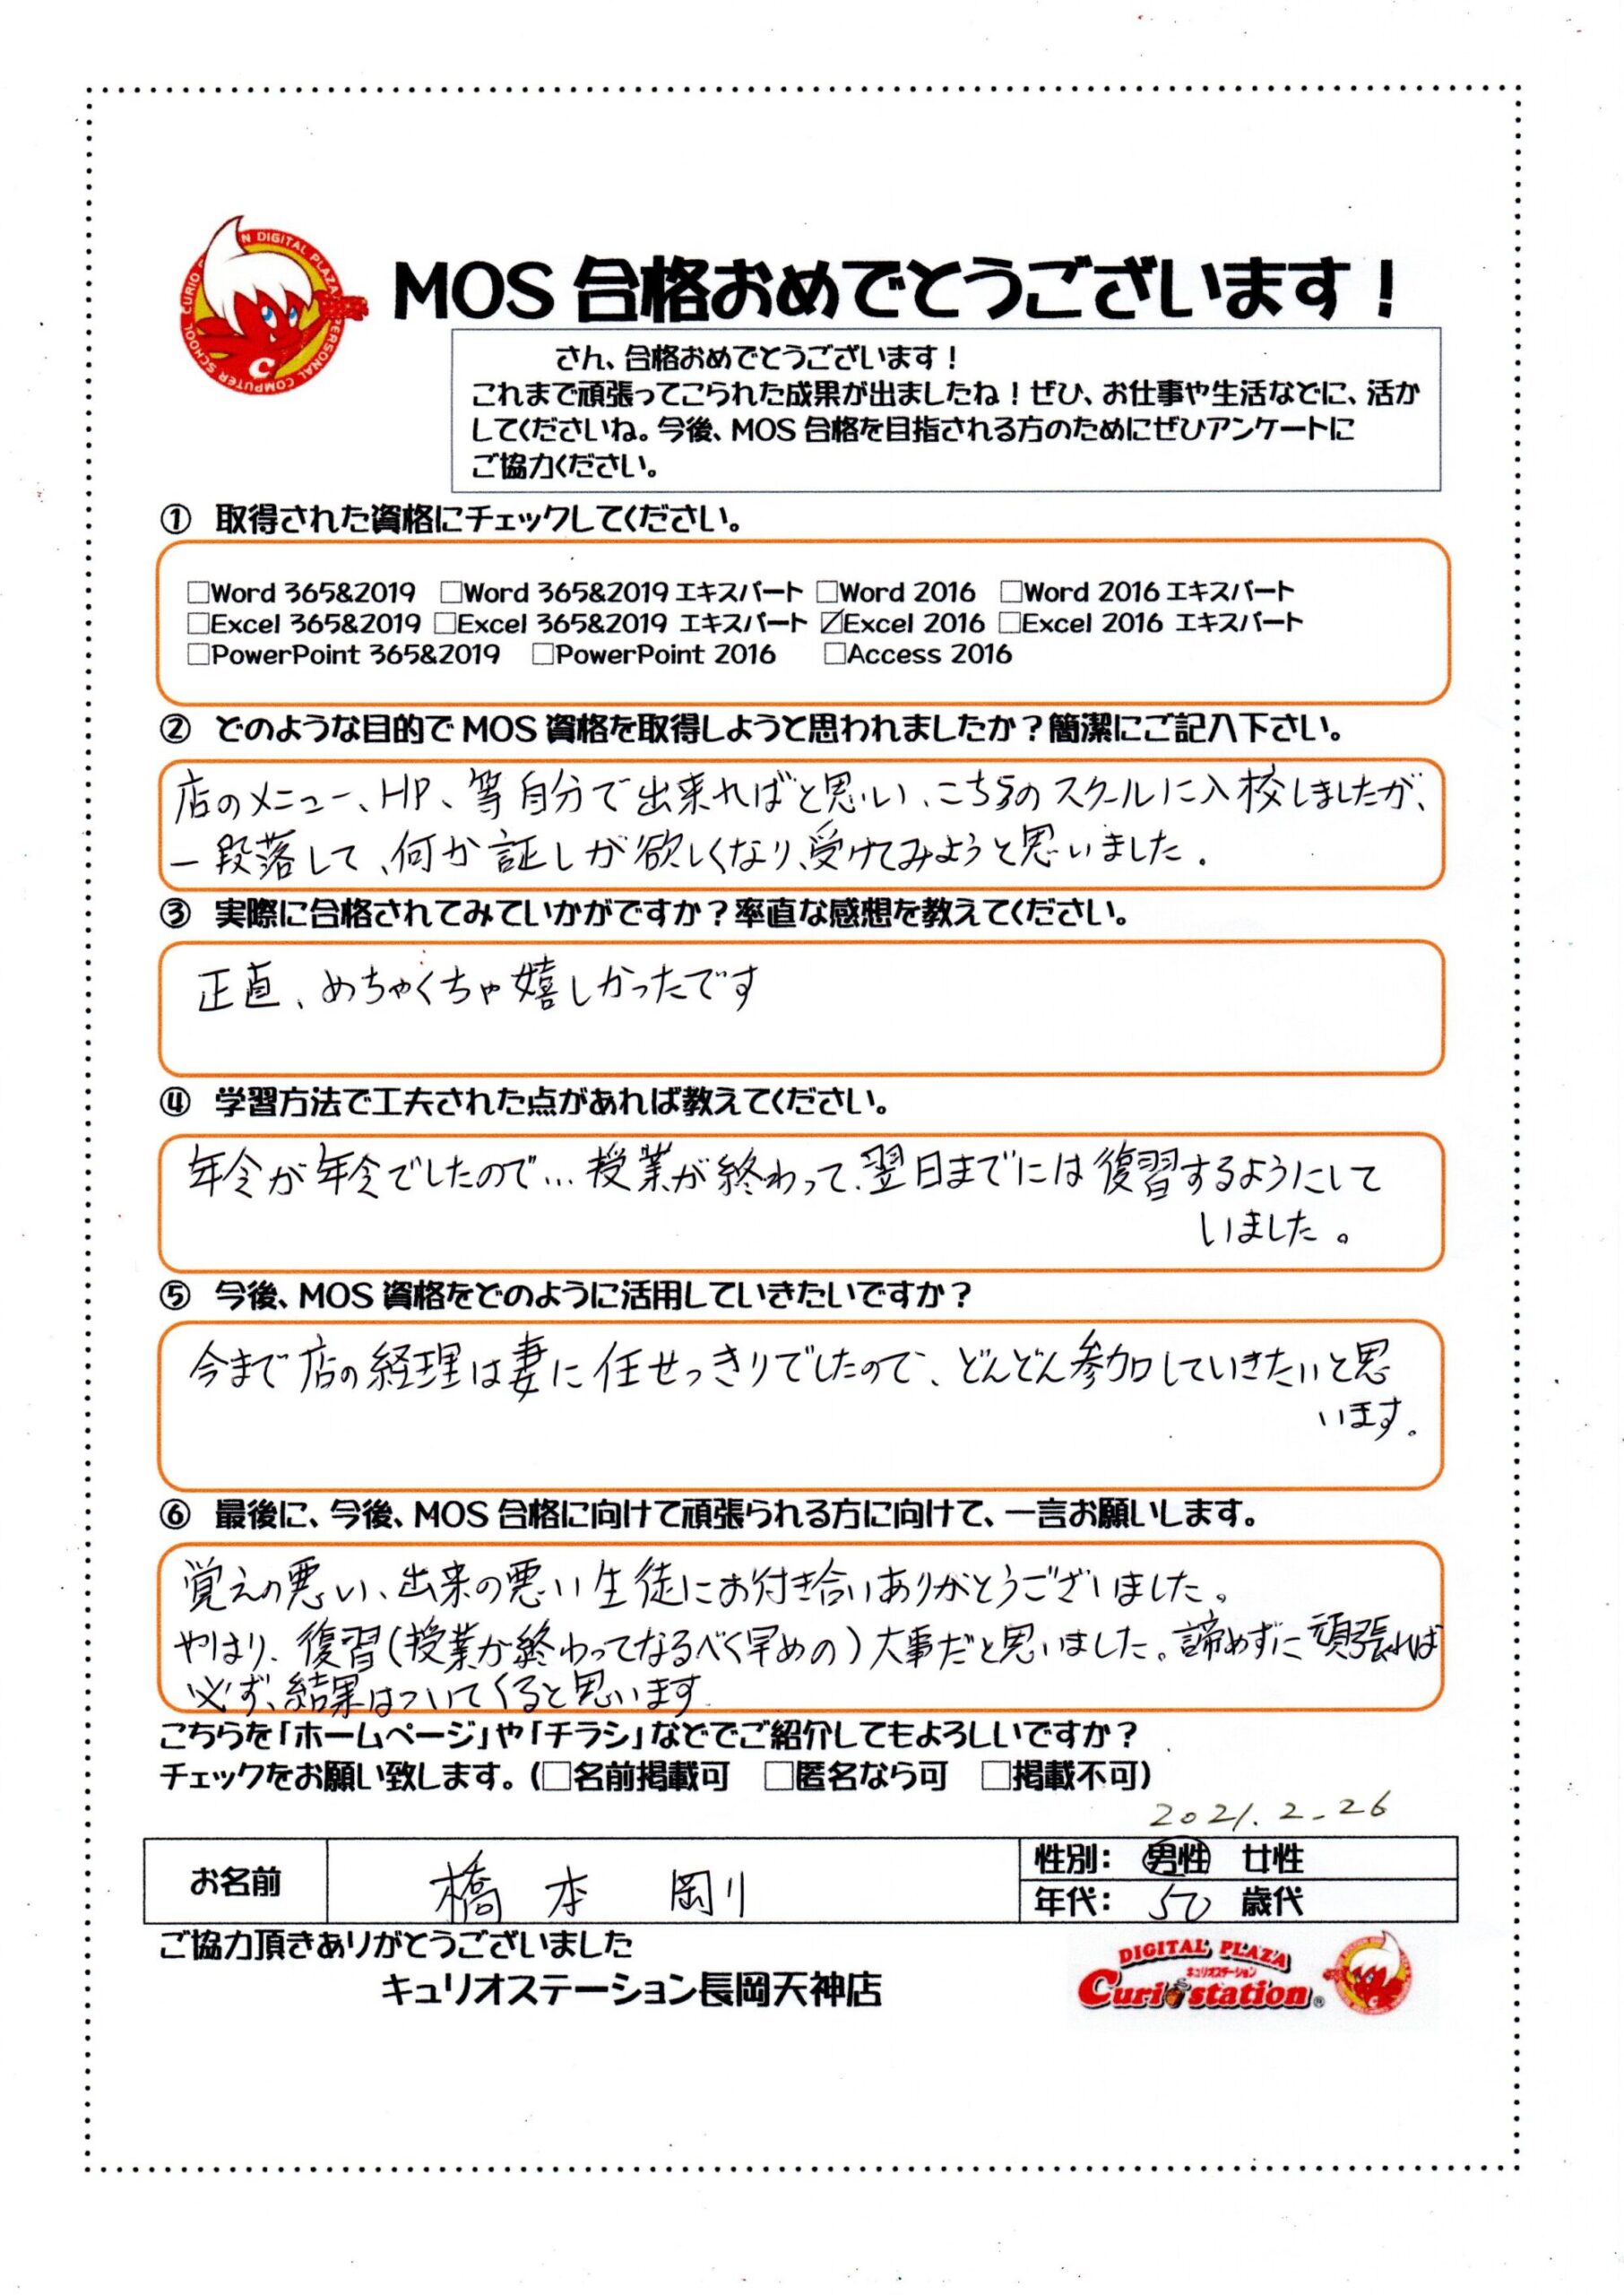 MOS 合格おめでとうございます！
さん、合格おめでとうございます！
これまで頑張ってこられた成果が出ましたね！ぜひ、お仕事や生活などに、活か
してくださいね。今後、MOS 合格を目指される方のためにぜひアンケートに
ご協力ください。
① 取得された資格にチェックしてください。
□Word 365&2019 □Word 365&2019 エキスパート □Word 2016 □Word 2016 エキスパート
□Excel 365&2019 □Excel 365&2019 エキスパート ☑Excel 2016 □Excel 2016 エキスパート
□PowerPoint 365&2019 □PowerPoint 2016 □Access 2016
② どのような目的で MOS 資格を取得しようと思われましたか？簡潔にご記入下さい。
店のメニュー、HP、等自分で出来ればと思い、こちらのスクールに入校しましたが、
一段落して、何か証しが欲しくなり、受けてみようと思いました。
③ 実際に合格されてみていかがですか？率直な感想を教えてください。
正直、めちゃくちゃ嬉しかったです
④ 学習方法で工夫された点があれば教えてください。
年令が年令でしたので…授業が終わって、翌日までには復習するようにして
いました。
⑤ 今後、MOS 資格をどのように活用していきたいですか？
今まで店の経理は妻に任せっきりでしたので、どんどん参加していきたいと思
います。
⑥ 最後に、今後、MOS 合格に向けて頑張られる方に向けて、一言お願いします。
覚えの悪い、出来の悪い生徒にお付き合いありがとうございました。
やはり、復習(授業が終わってなるべく早めの)大事だと思いました。諦めずに頑張れば
必ず、結果はついてくると思います
こちらを「ホームページ」や「チラシ」などでご紹介してもよろしいですか？
チェックをお願い致します。(□名前掲載可 □匿名なら可 □掲載不可)
2021.2.26
お名前 橋本 剛 性別： 男性 女性
年代： 50 歳代
ご協力頂きありがとうございました
キュリオステーション長岡天神店
DIGITAL PLAZA
キュリオステーション
Curio station®